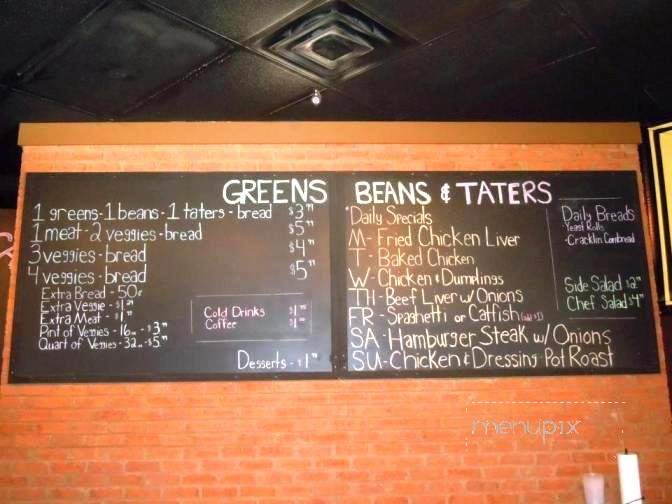 GREENS
1 greens-1 beans-1 taters-bread $3"
1 meat-2 veggies-bread $5"
3 veggies-bread $4"
4 veggies-bread $5"
Extra Bread - 50¢
Extra Veggie - $1"
Extra Meat - $1"
Pint of Veggies - 16oz - $3"
Quart of Veggies - 32oz - $5"
Cold Drinks $1"
Coffee $1"
Desserts - $1"
BEANS & TATERS
Daily Specials
M - Fried Chicken Liver
T - Baked Chicken
W - Chicken & Dumplings
TH - Beef Liver w/ Onions
FR - Spaghetti or Catfish (add $1)
SA - Hamburger Steak w/ Onions
SU - Chicken & Dressing Pot Roast
Daily Breads
-Yeast Rolls
-Cracklin Cornbread
Side Salad $2"
Chef Salad $4"
menupix